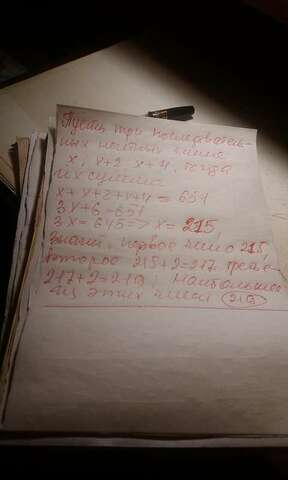 Пусть три последователь-
ных нечётных числа:
x, x+2, x+4, тогда
их сумма:
x+x+2+x+4=651
3x+6=651
3x=645=> x=215,
Значит, первое число 215,
второе 215+2=217, третье
217+2=219; наибольшее
из этих чисел 219